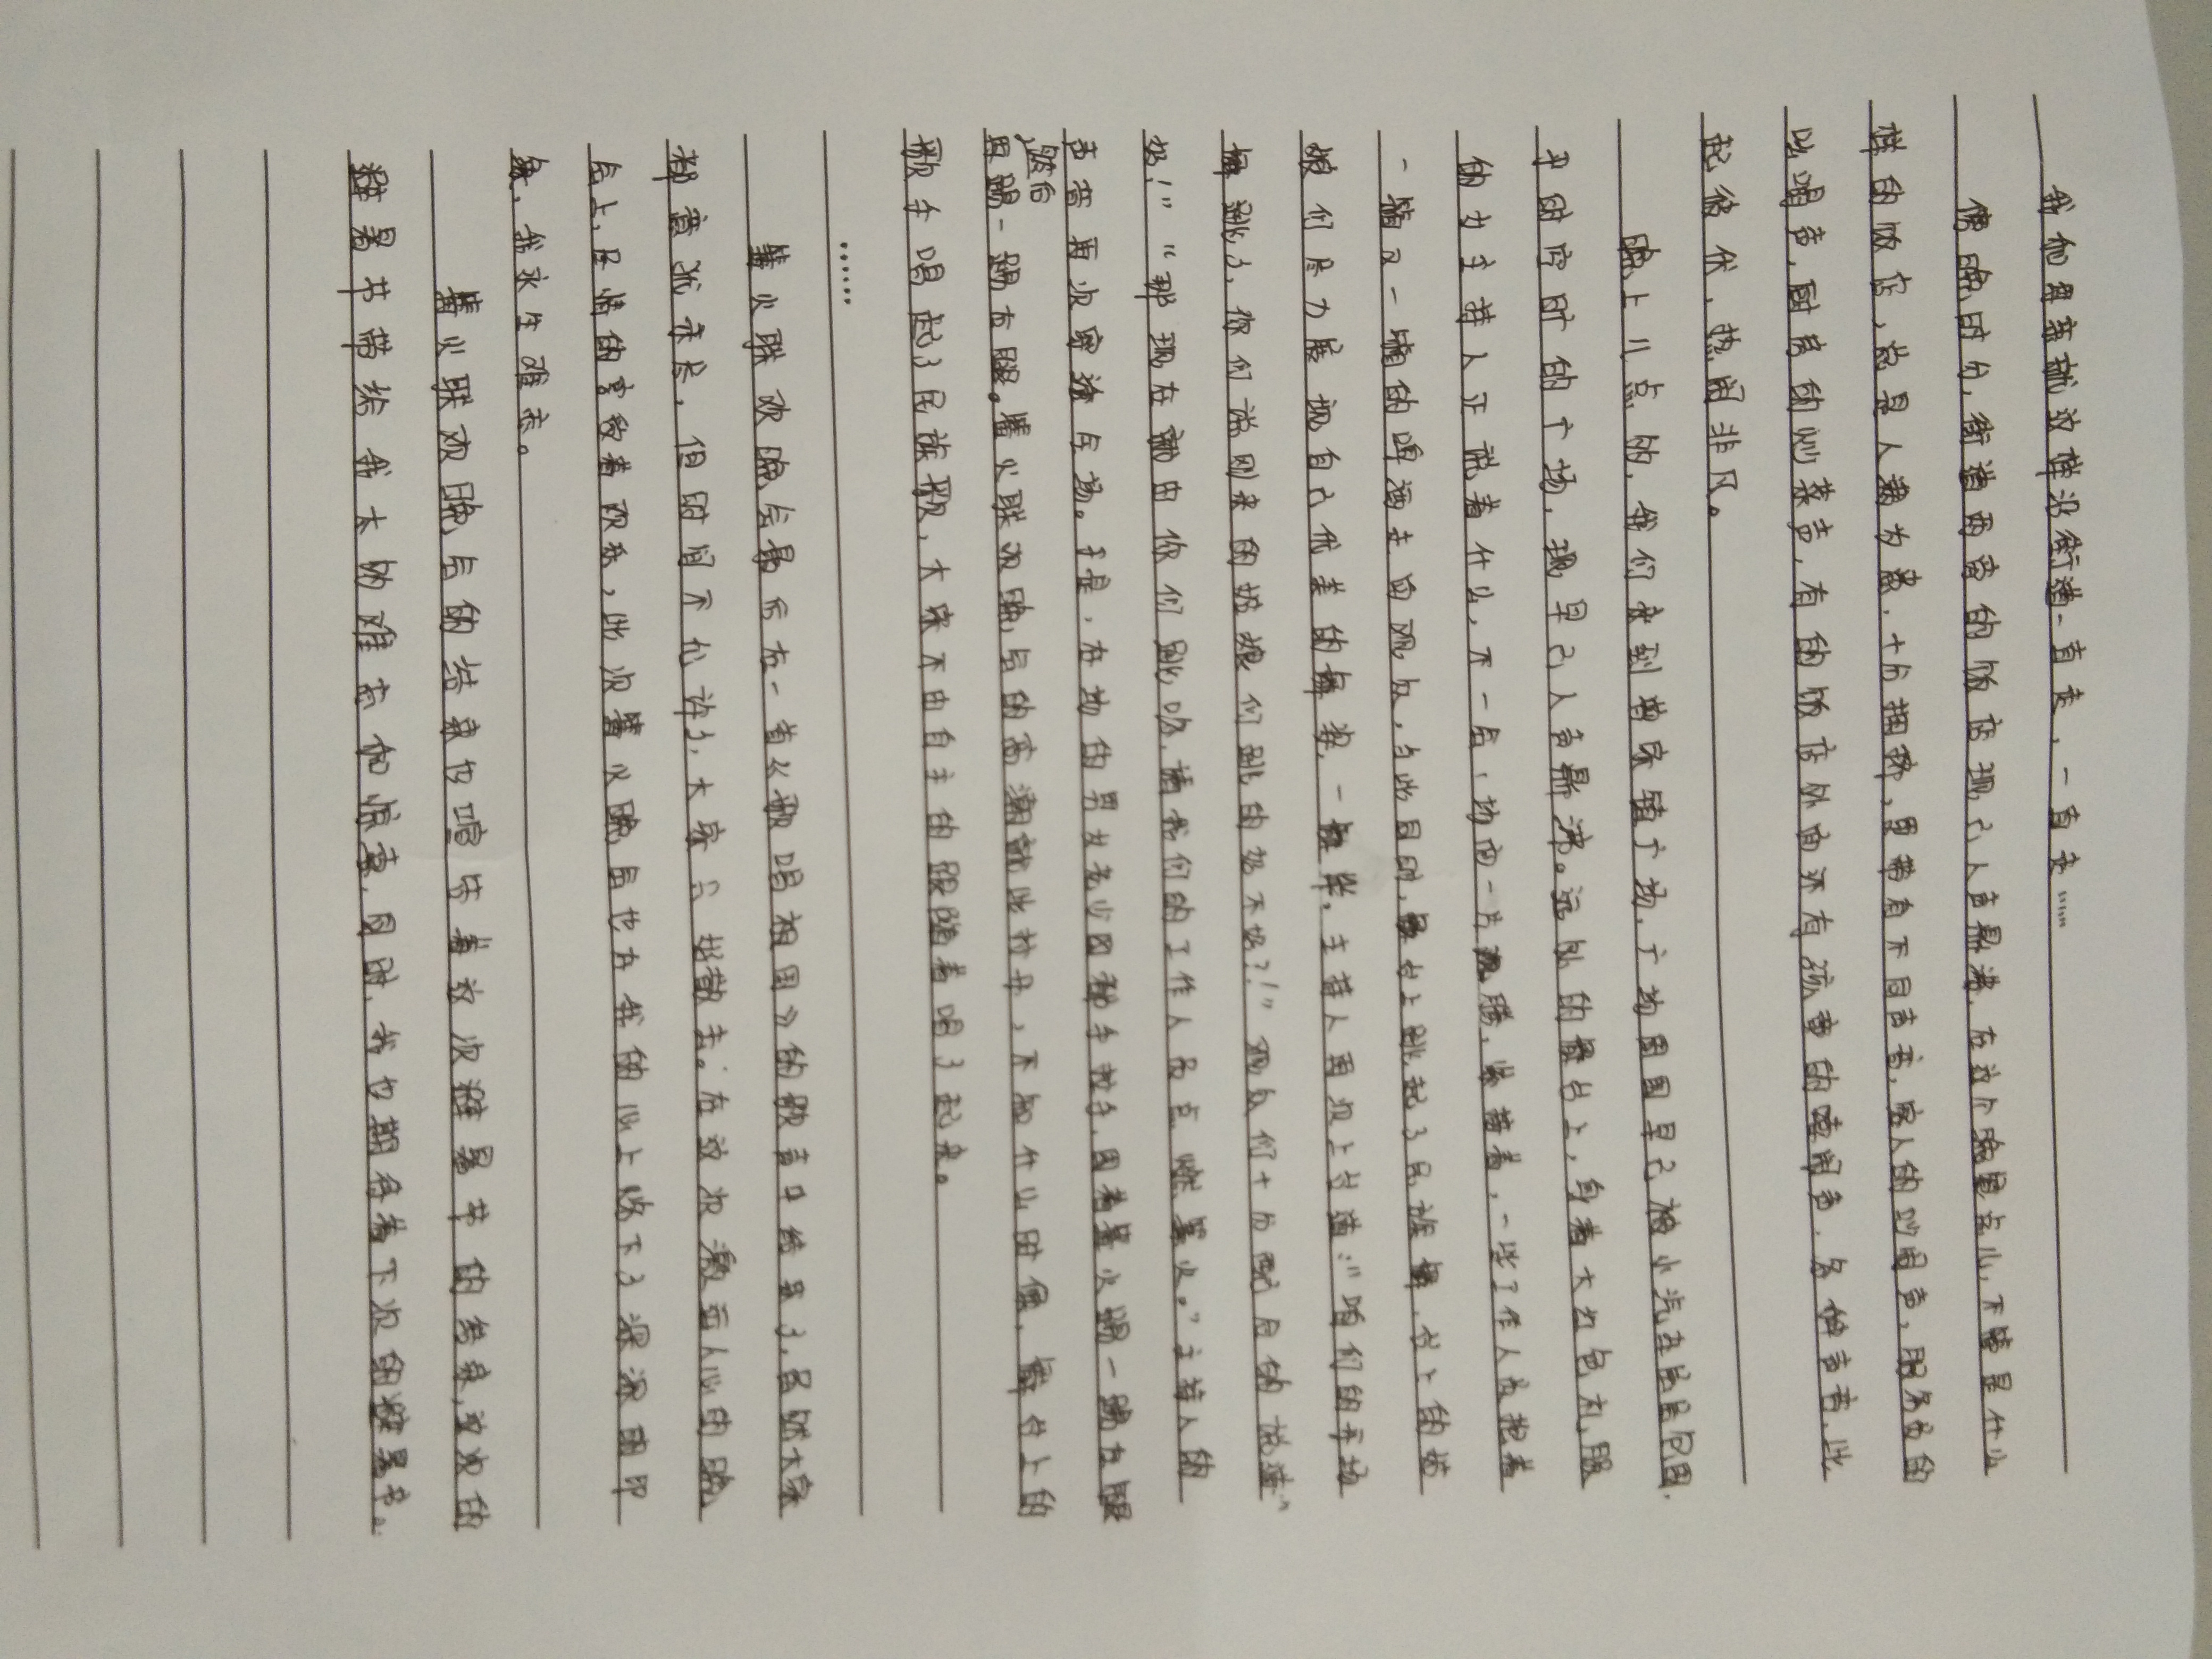 我和母亲就这样沿街道一直走，一直走……
傍晚时分，街道两旁的饭店现已人声鼎沸，在这个晚餐点儿，不管是什么
样的饭店，总是人满为患，十分拥挤，里带有不同声音，客人的吵闹声，服务员的
吆喝声，厨房的炒菜声，有的饭店外面还有孩童的嬉闹声，各种声音，此
起彼伏，热闹非凡。
晚上八点的，我们来到苗家镇广场，广场周围早已被小汽车层层包围，
平时空旷的广场，现早已人声鼎沸。远处的舞台上，身着大红色礼服
的女主持人正说着什么，不一会，场面一片沸腾，紧接着，一些工作人员抱着
一箱又一箱的啤酒走向观众，与此同时，舞台上跳起了民族舞，台上的姑
娘们尽力展现自己优美的舞姿，一舞毕，主持人再次上台道：“咱们的开场
舞跳了，你们说刚来的姑娘们跳的好不好？！”观众们十分配合的说道：“
好！”“那现在就由你们跳吧，请我们的工作人员点燃篝火。”主持人的
声音再次穿透全场。于是，在场的男女老少因都手拉手，围着篝火踢一踢左腿
然后
再踢一踢右腿。篝火联欢晚会的高潮就此打开，不知什么时候，舞台上的
歌手唱起了民族歌，大家不由自主的跟随着唱了起来。
……
篝火联欢晚会最后在一首《歌唱祖国》的歌声中结束了，虽然大家
都意犹未尽，但时间不允许了，大家只好散去。在这次激动人心的晚
会上，尽情的享受着欢乐，此次篝火晚会也在我的心上烙下了深深的印
象，我永生难忘。
篝火联欢晚会的结束也暗示着这次避暑节的结束，这次的
避暑节带给我太的难忘和惊喜，同时，我也期待着下次的避暑节。